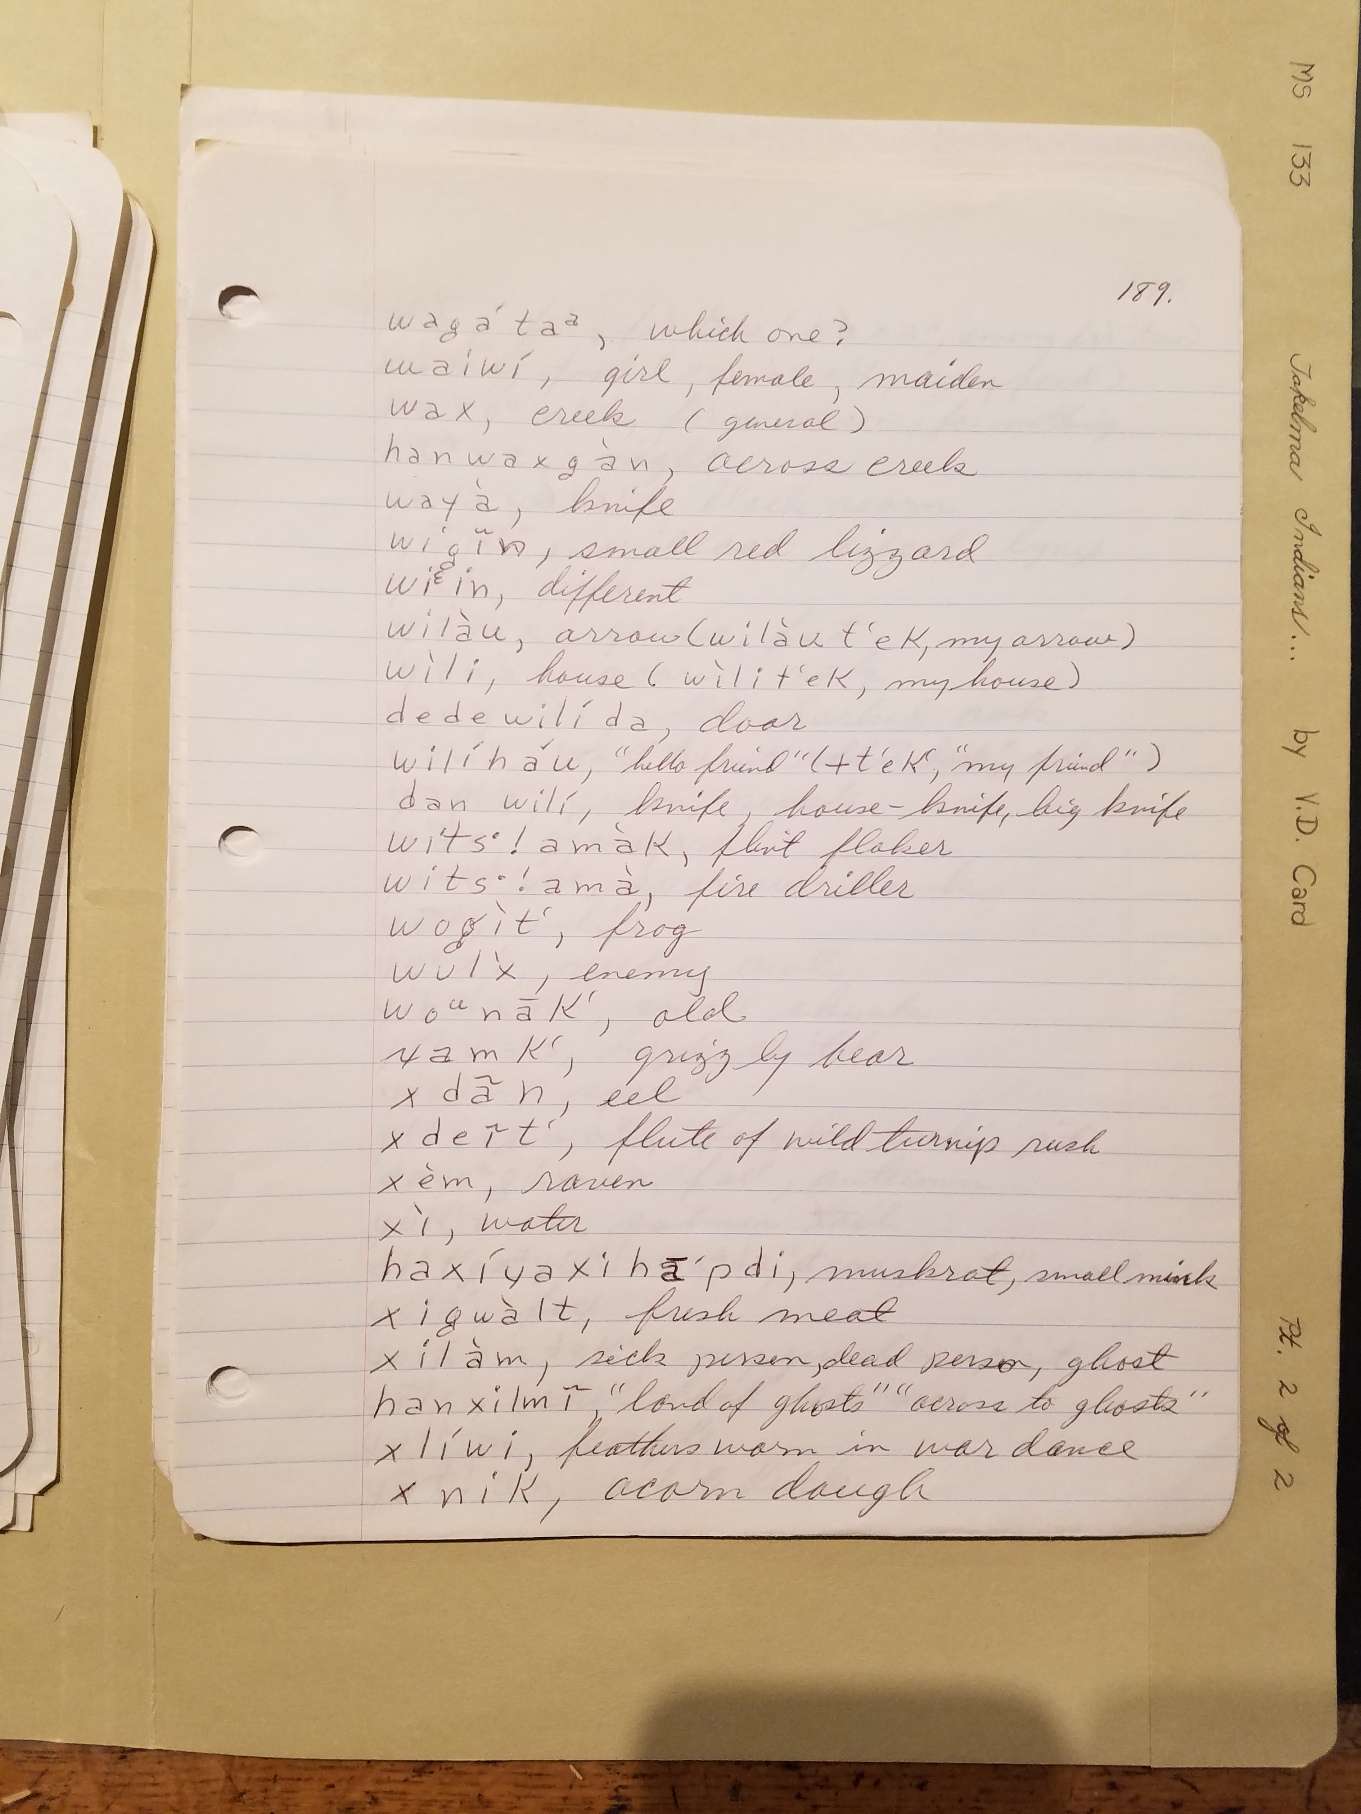 189.
wagátaᵃ, which one?
waiwí, girl, female, maiden
wax, creek (general)
hanwaxgàn, across creek
wayà, knife
wigĩn, small red lizzard
wiᵋin, different
wilàu, arrow (wilàu t'eK, my arrow)
wìli, house (wìlit'eK, my house)
dedewilída, door
wilíháu, "hello friend" (+t'eK', "my friend")
dan wilí, knife, house-knife, big knife
wíts·!amàK, flint flaker
wits·!amà, fire driller
wogìt', frog
wulx̀, enemy
woᵘnāK', old
yamK', grizzly bear
xdãn, eel
xdeĩt', flute of wild turnip rush
xèm, raven
xì, water
haxíyaxihā́pdi, muskrat, small mink
xigwàlt, fresh meat
xilàm, sick person, dead person, ghost
hanxilmĩ, "land of ghosts" "across to ghosts"
xlíwi, feathers worn in war dance
xniK, acorn dough
MS 133 Takelma Indians... by V.D. Card Pt. 2 of 2